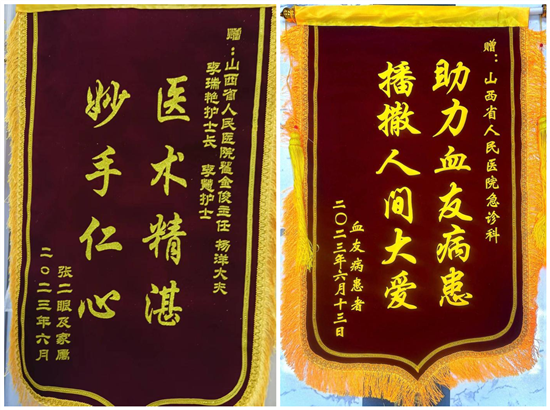 赠：山西省人民医院翟金俊主任 杨洋大夫
李瑞艳护士长 李慧护士
医术精湛
妙手仁心
张二眼及家属
二〇二三年六月
赠：山西省人民医院急诊科
助力血友病患
播撒人间大爱
血友病患者
二〇二三年六月十三日